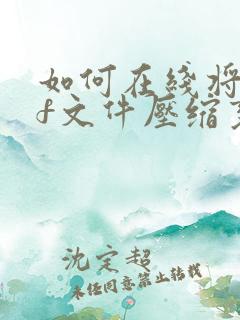 如何在线将
f文件压缩
沈定超
未经同意禁止转载